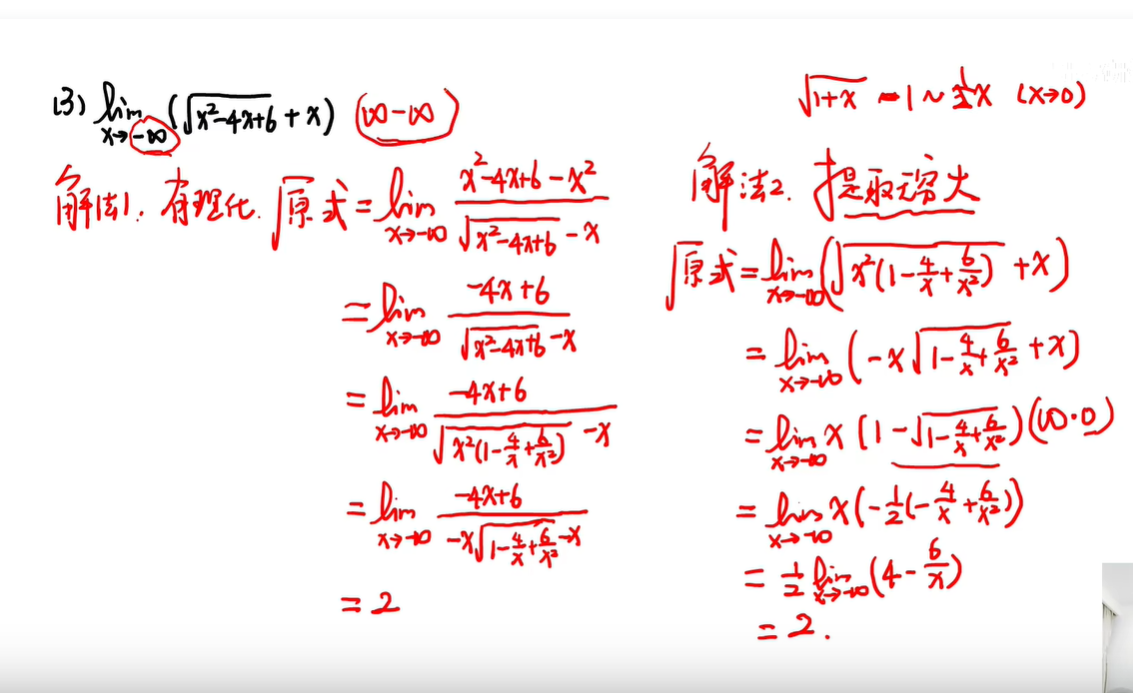 (3) lim x→-∞ (√(x²-4x+6) + x) (∞-∞)
解法1. 有理化. 原式 = lim x→-∞ (x²-4x+6-x²)/(√(x²-4x+6) - x)
= lim x→-∞ (-4x+6)/(√(x²-4x+6) - x)
= lim x→-∞ (-4x+6)/(√(x²(1-4/x+6/x²)) - x)
= lim x→-∞ (-4x+6)/(-x√(1-4/x+6/x²) - x)
= 2
√(1+x) - 1 ~ ½x (x→0)
解法2. 提取无穷大
原式 = lim x→-∞ (√(x²(1-4/x+6/x²)) + x)
= lim x→-∞ (-x√(1-4/x+6/x²) + x)
= lim x→-∞ x(1-√(1-4/x+6/x²)) (∞·0)
= lim x→-∞ x(-½(-4/x+6/x²))
= ½ lim x→-∞ (4-6/x)
= 2.